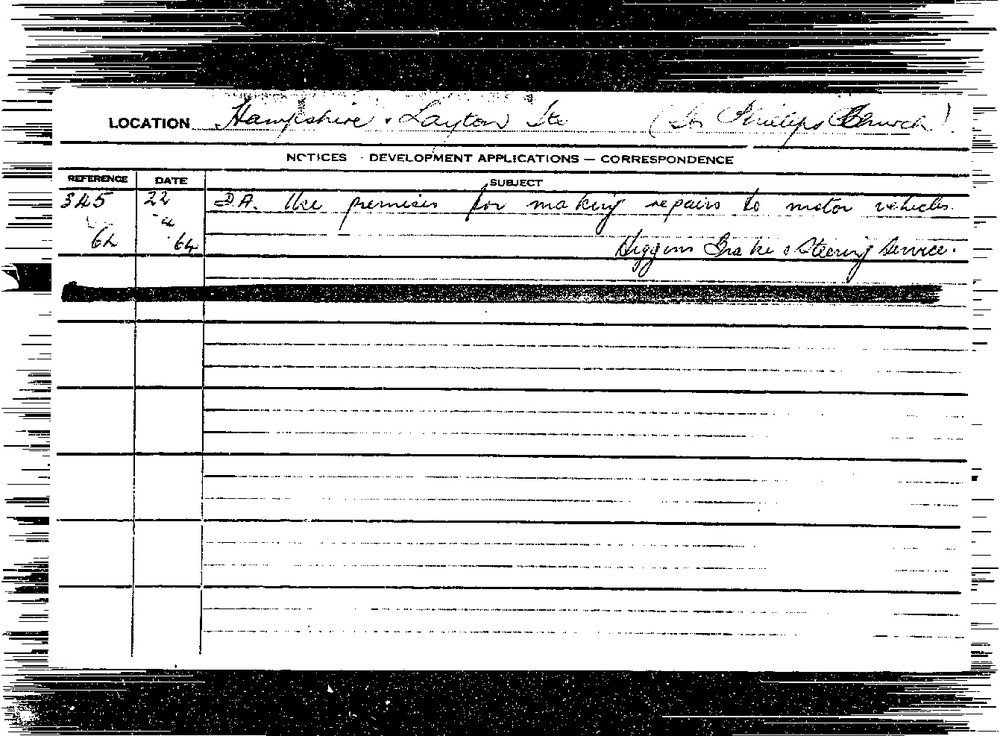 LOCATION Hampshire & Layton Sts (St Phillips Church)
NOTICES - DEVELOPMENT APPLICATIONS — CORRESPONDENCE
REFERENCE DATE SUBJECT
345 22 D.A. Use premises for making repairs to motor vehicles.
4
64 64 Higgins Brake & Steering Service.